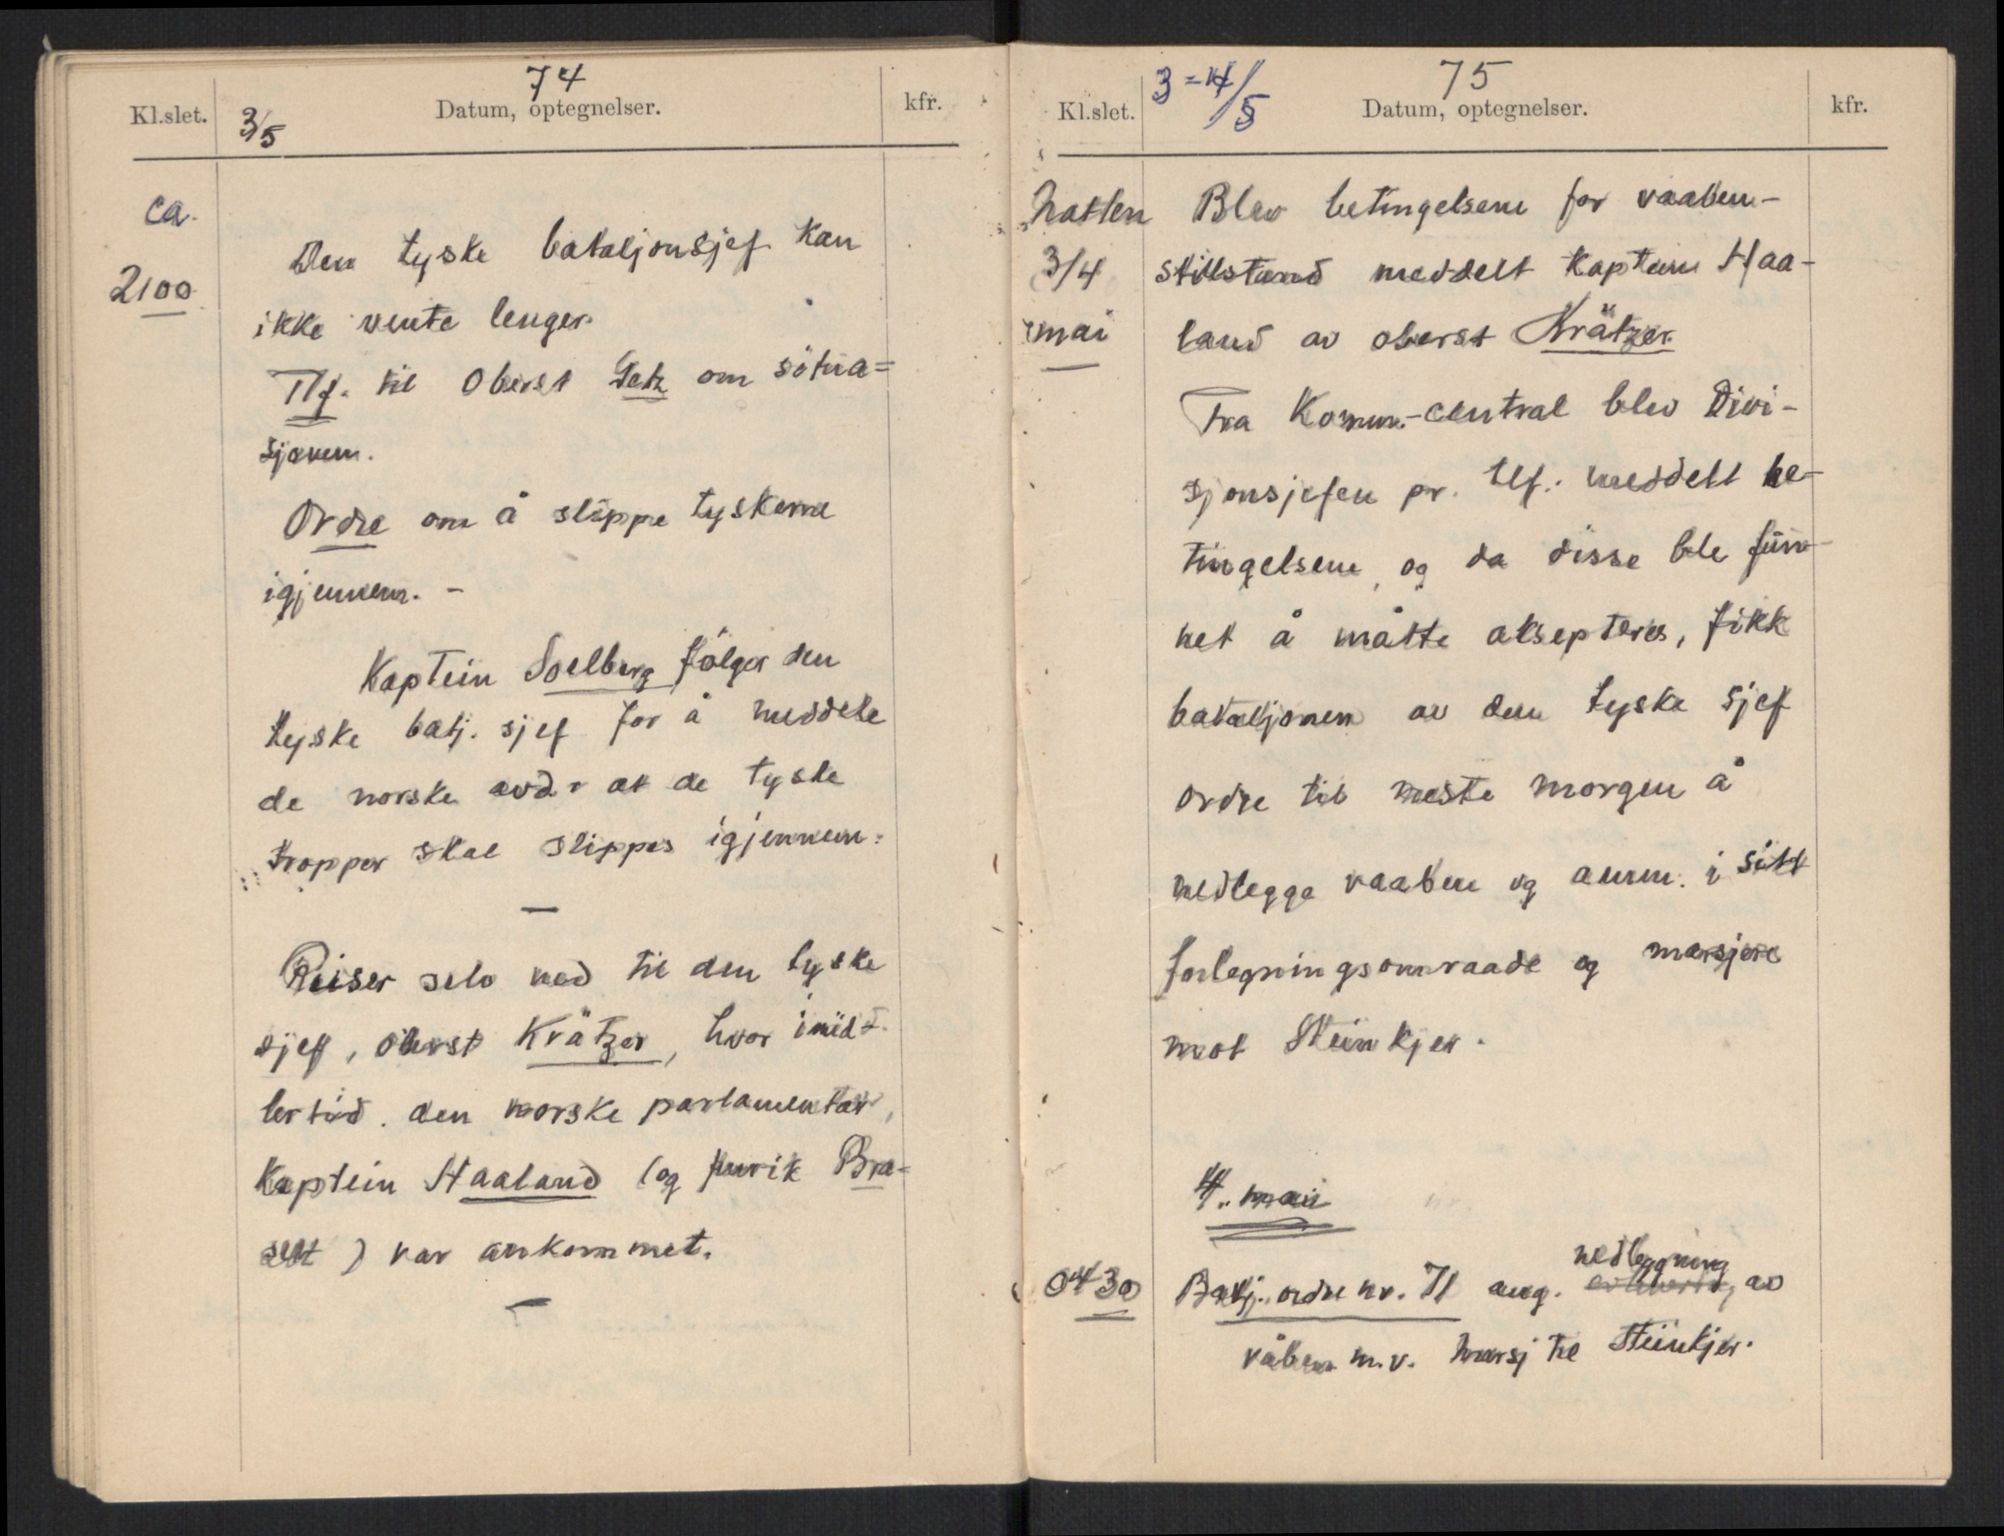 74
Kl.slet. 3/5 Datum, optegnelser. kfr.
ca.
2100
Den tyske bataljonsjef kan
ikke vente lenger.
Tlf. til Oberst Getz om situa=
sjonen.
Ordre om å slippe tyskerne
igjennem. -
Kaptein Soelberg følger den
tyske batj. sjef for å meddele
de norske avd. at de tyske
tropper skal slippes igjennem.
—
Reiser selv ned til den tyske
sjef, oberst Krätzer, hvor imid-
lertid den norske parlamentær,
Kaptein Haaland (og furik Bra=
seth) var ankommet.
—
75
Kl.slet. 3=4/5 Datum, optegnelser. kfr.
Natten
3/4
mai
Blev betingelsene for vaaben-
stillstand meddelt Kaptein Haa-
land av oberst Krätzer.
Fra Komm.-central blev Divi-
sjonsjefen pr. tlf. meddelt be-
tingelsene, og da disse ble fun-
net å måtte aksepteres, fikk
bataljonen av den tyske sjef
ordre til neste morgen å
nedlegge vaaben og amm. i sitt
forlegningsomraade og marsjere
mot Steinkjer.
4. mai
0430
nedleggning
Batj. ordre nr. 71 ang. av
våben m.v. Marsj til Steinkjer.